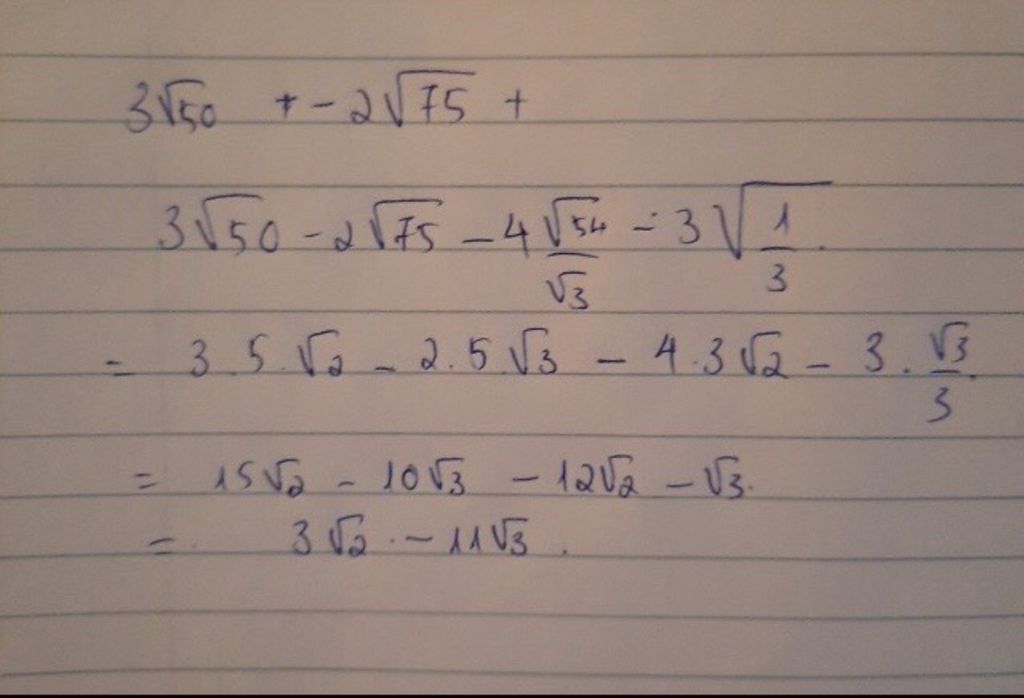 3√50 + - 2√75 +
3√50 - 2√75 - 4 √54/√3 - 3√(1/3).
= 3.5.√2 - 2.5.√3 - 4.3√2 - 3.√3/3.
= 15√2 - 10√3 - 12√2 - √3.
= 3√2 . - 11√3.